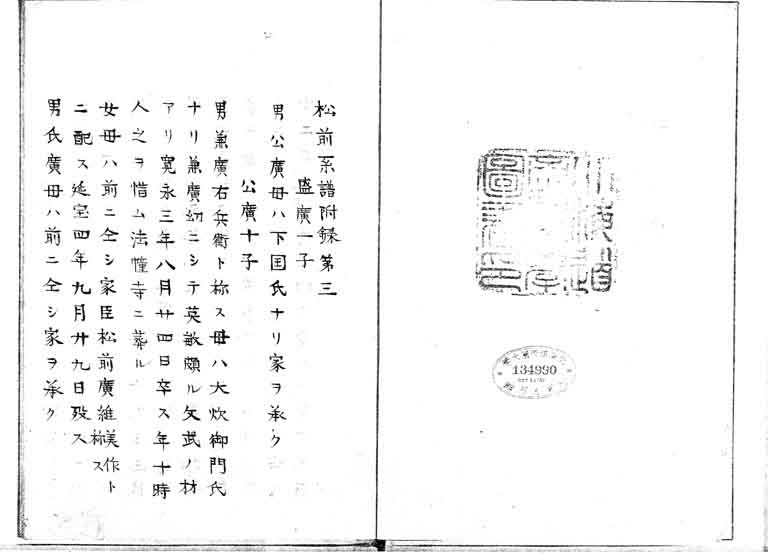 松前系譜附録第三
盛廣一子
男公廣母ハ下国氏ナリ家ヲ承ク
公廣十子
男兼廣右兵衛ト称ス母ハ大炊御門氏
ナリ兼廣幼ニシテ英敏頗ル文武ノ材
アリ寛永三年八月廿四日卒ス年十時
人之ヲ惜ム法幢寺ニ葬ル
女母ハ前ニ仝シ家臣松前廣維美作ト称ス
ニ配ス延宝四年九月廿九日歿ス
男氏廣母ハ前ニ仝シ家ヲ承ク
134990